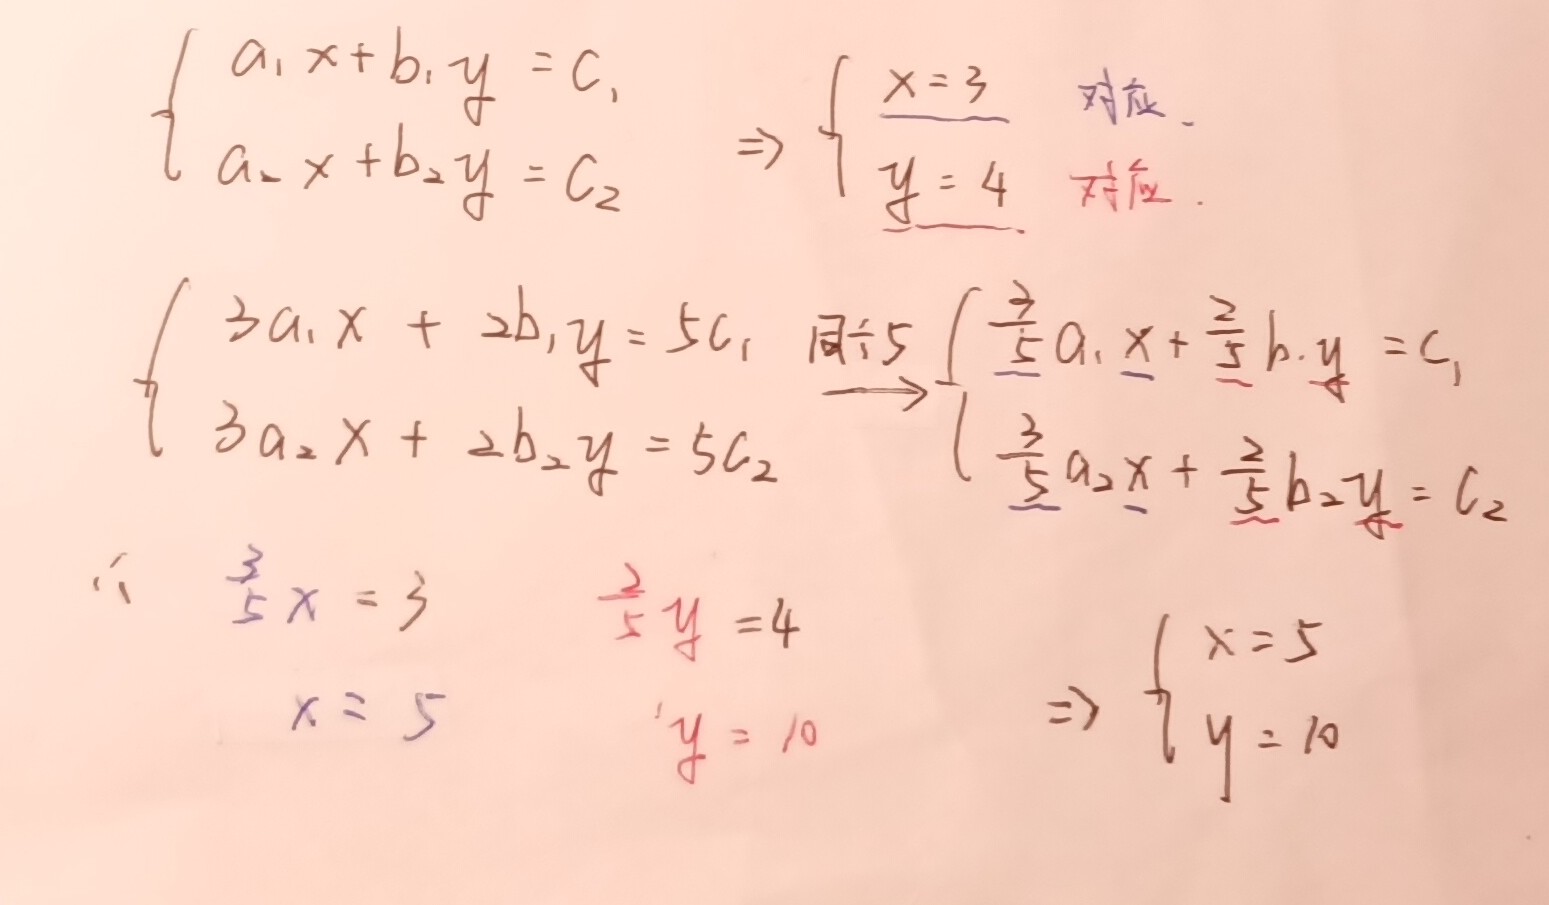 a₁x+b₁y=c₁
a₂x+b₂y=c₂
⇒
x=3 对应.
y=4 对应.
3a₁x + 2b₁y=5c₁
3a₂x + 2b₂y=5c₂
同÷5
3/5 a₁x+2/5 b₁y=c₁
3/5 a₂x+2/5 b₂y=c₂
∴ 3/5 x=3 2/5 y=4
x=5 y=10
⇒
x=5
y=10